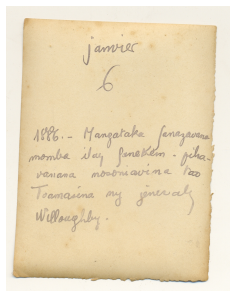 janvier
6
1886. - Mangataka fanazavana
momba ilay fanekem-piha-
vanana nosoniavina tao
Toamasina ny jeneraly
Willoughby.